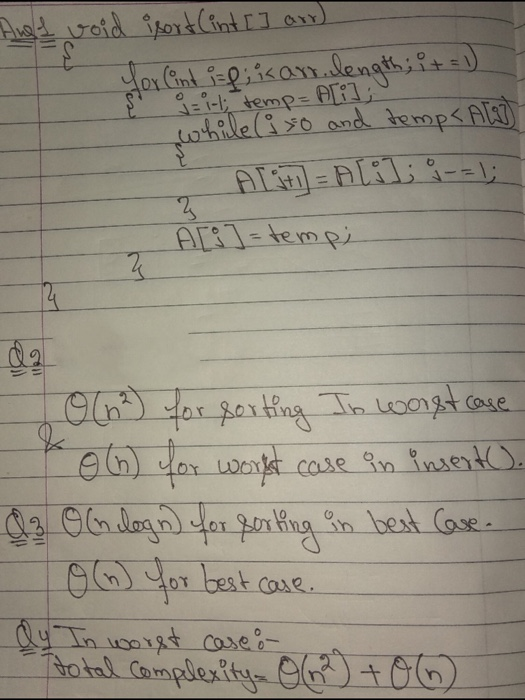 Ans1 void isort(int[] arr)
{
for(int i=0; i<arr.length; i+=1)
{ j=i-1; temp=A[i];
while(j>0 and temp<A[j])
{
A[j+1]=A[j]; j-=1;
}
A[j]=temp;
}
}
Q2
θ(n²) for sorting In worst case
&
θ(n) for worst case in insert().
Q3 θ(n logn) for sorting in best Case.
θ(n) for best case.
Q4 In worst case:-
total complexity= θ(n²) + θ(n)